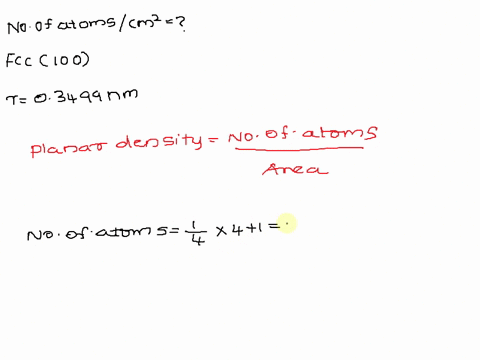 No. of atoms/cm² = ?
FCC (100)
r = 0.3499 nm
Planar density = No. of. atoms / Area
No. of. atoms = 1/4 × 4 + 1 =